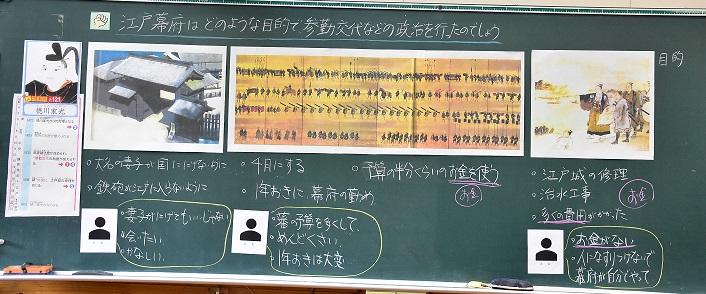 江戸幕府はどのような目的で参勤交代などの政治を行たのでしょう
目的
徳川家光
・大名の妻子が国ににげないように
・鉄砲が江戸に入らないように
・4月にする
・1年おきに、幕府の勤め
・予算の半分くらいのお金を使う
お金
・江戸城の修理
・治水工事
・多くの費用がかかった
お金
・会いたい
・かなしい
・藩の予算を多くして、
・めんどくさい
・1年おきは大変
・お金がない
・人になすりつけないで
幕府が自分でやって